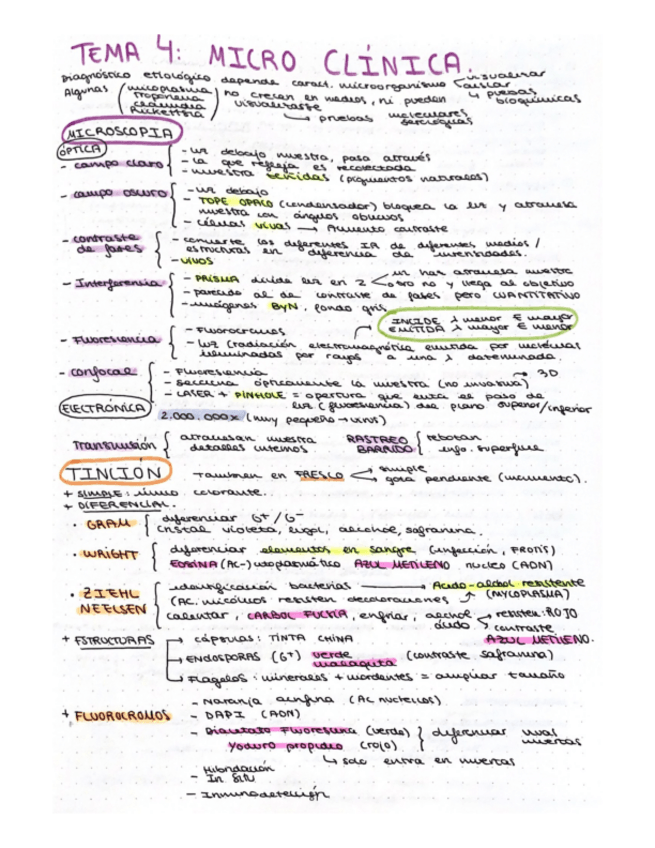 TEMA 4: MICRO CLÍNICA.
Diagnóstico etiológico depende caract. microorganismo visualizar
aislar
pruebas bioquímicas
Algunas (micoplasma
treponema
clamidia
Rickettsia) no crecen en medios, ni pueden visualizarse
→ pruebas moleculares
serológicas
MICROSCOPIA
ÓPTICA
- campo claro
- luz debajo muestra, pasa através
- la que refleja es recolectada
- muestra teñidas (pigmentos naturales)
- campo oscuro
- luz debajo
- TOPE OPACO (condensador) bloquea la luz y atraviesa
muestra con ángulos oblicuos
- células vivas → Aumento contraste
- contraste de fases
- convierte los diferentes IR de diferentes medios /
estructuras en diferencia de intensidades.
- vivos
- Interferencia
- PRISMA divide luz en 2 < un haz atraviesa muestra
otro no y llega al objetivo
- parecido al de contraste de fases pero CUANTITATIVO
- imágenes ByN, fondo gris
INCIDE λ menor E mayor
EMITIDA λ mayor E menor
- Fluorescencia
- Fluorocromos
- luz (radiación electromagnética emitida por moléculas
iluminadas por rayos a una λ determinada.
- confocal
- Fluorescencia
- Secciona ópticamente la muestra (no invasiva) → 3D
- LASER + PINHOLE = apertura que evita el paso de
luz (fluorescencia) del plano superior/inferior
ELECTRÓNICA
2.000.000x (muy pequeño → virus)
Transmisión { atraviesan muestra
detalles internos
RASTREO
BARRIDO { rebotan
info. superficie
TINCIÓN
También en FRESCO < simple
gota pendiente (movimiento).
+ SIMPLE: único colorante.
+ DIFERENCIAL.
· GRAM { diferenciar G+ / G-
cristal violeta, lugol, alcohol, safranina.
· WRIGHT { diferenciar elementos en sangre (infección, FROTIS)
EOSINA (Ac-) citoplasmático AZUL METILENO nucleo (ADN)
· ZIEHL NEELSEN
identificación bacterias → Acido-alcohol resistente
(AC. micólicos resisten decoloraciones ↑ (MYCOPLASMA)
calentar, CARBOL FUCSIA, enfriar, alcohol ácido → resisten: ROJO
contraste
AZUL METILENO.
+ ESTRUCTURAS
→ cápsulas: TINTA CHINA
→ ENDOSPORAS (G+) verde malaquita (contraste safranina)
→ Flagelos: minerales + mordentes = ampliar tamaño
+ FLUOROCROMOS
- Naranja acridina (AC nucleicos)
- DAPI (ADN)
- Diacetato Fluoresceína (verde)
Yoduro propidio (rojo) } diferenciar vivas
muertas
↳ solo entra en muertas
- Hibridación
In situ
- Inmunodetección